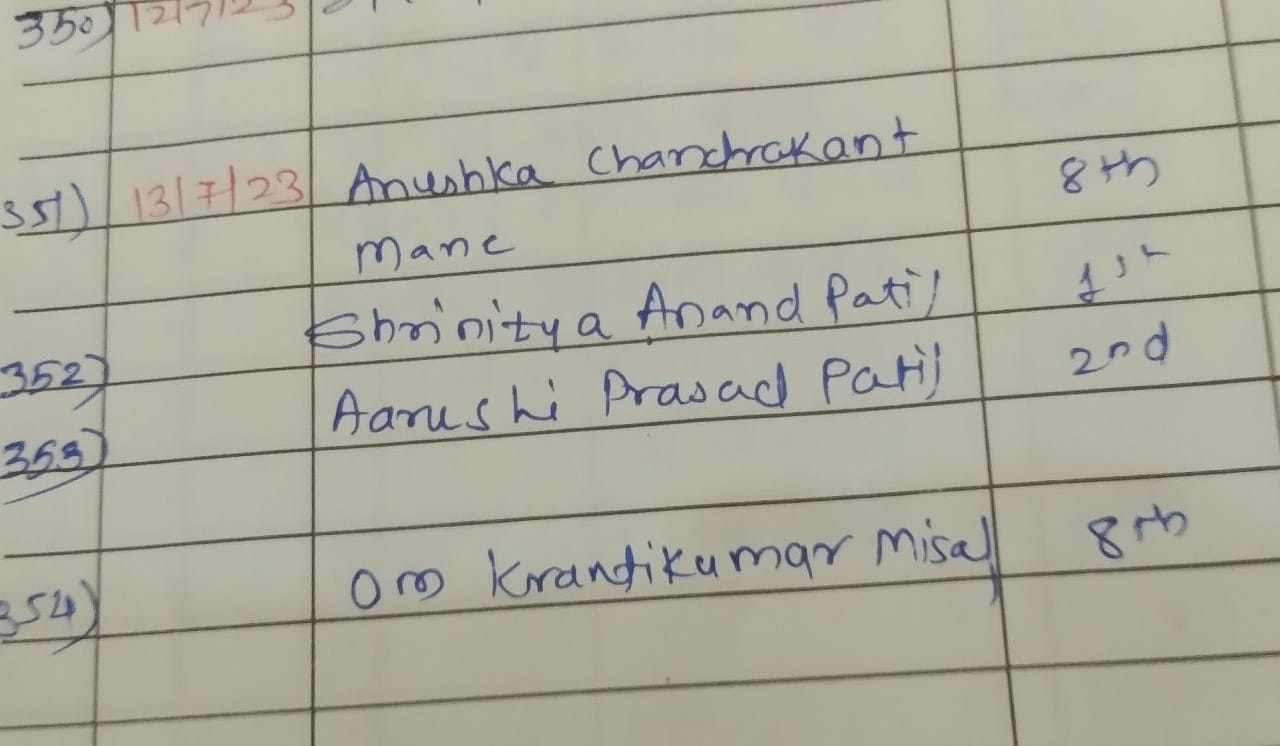 350) 12/7/23
351) 13/7/23 Anushka Chandrakant 8th
Mane
352) Shrinitya Anand Patil 1st
353) Aarushi Prasad Patil 2nd
354) Om Krantikumar Misal 8th